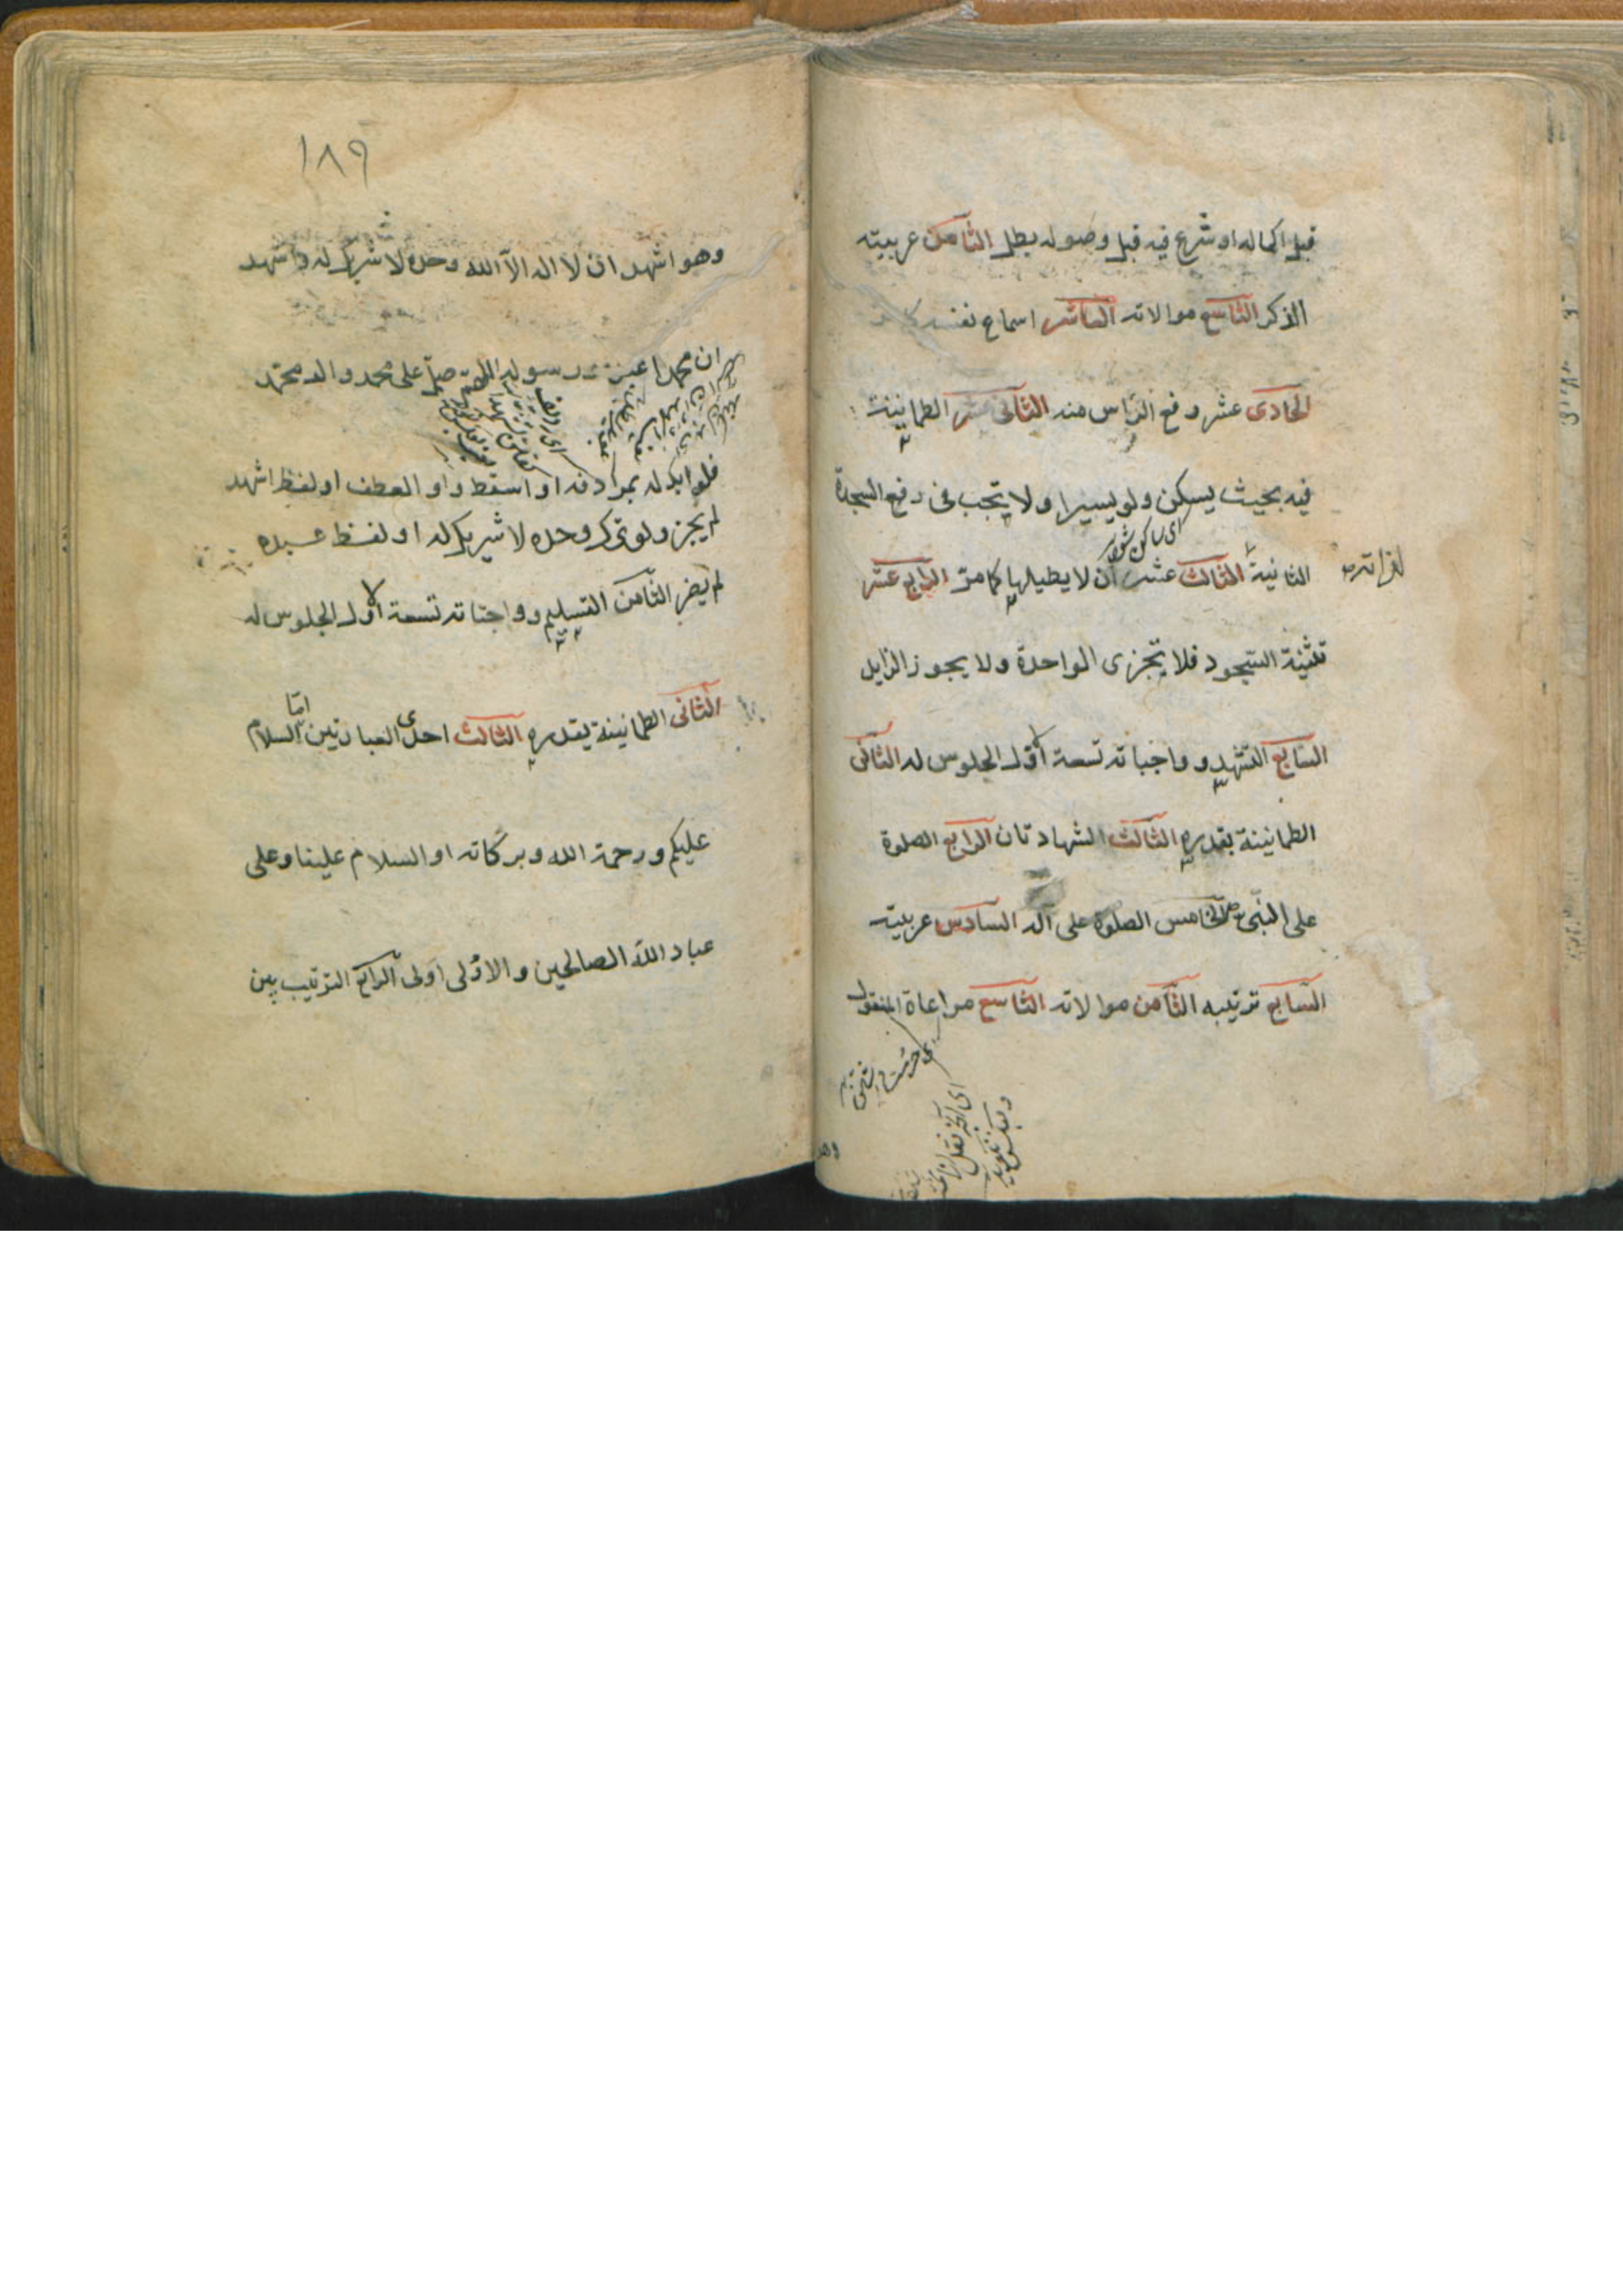 قبل اكماله او شرع فيه قبل وصوله بطل الثامن عربيته
الذكر التاسع موالاته العاشر اسماع نفسه
الحادى عشر رفع الرأس منه الثانى عشر الطمانينة
فيه بحيث يسكن ولو يسيرا ولا تجب فى رفع السجدة
اى ساكن شود
الثانية الثالث عشر ان لا يطيلها كما مرّ الرابع عشر
تثنية السجود فلا تجزى الواحدة ولا يجوز الزايد
السابع التشهد و واجباته تسعة الاول الجلوس له الثانى
الطمانينة بقدره الثالث الشهادتان الرابع الصلوة
على النبى الخامس الصلوة على آله السادس عربيته
السابع ترتيبه الثامن موالاته التاسع مراعاة المنقول
وهو
١٨٩
وهو اشهد ان لا اله الّا الله وحده لا شريك له واشهد
ان محمدا عبده ورسوله اللهم صلّ على محمد وال محمد
فلو ابدله بمرادفه او اسقط واو العطف او لفظ اشهد
لم يجز ولو ترك وحده لا شريك له او لفظ عبده
لم يضر الثامن التسليم و واجباته تسعة الاول الجلوس له
الثانى الطمانينة بقدره الثالث احدى العبارتين امّا السلام
عليكم ورحمة الله وبركاته او السلام علينا وعلى
عباد الله الصالحين والاولى اولى الرابع الترتيب بين